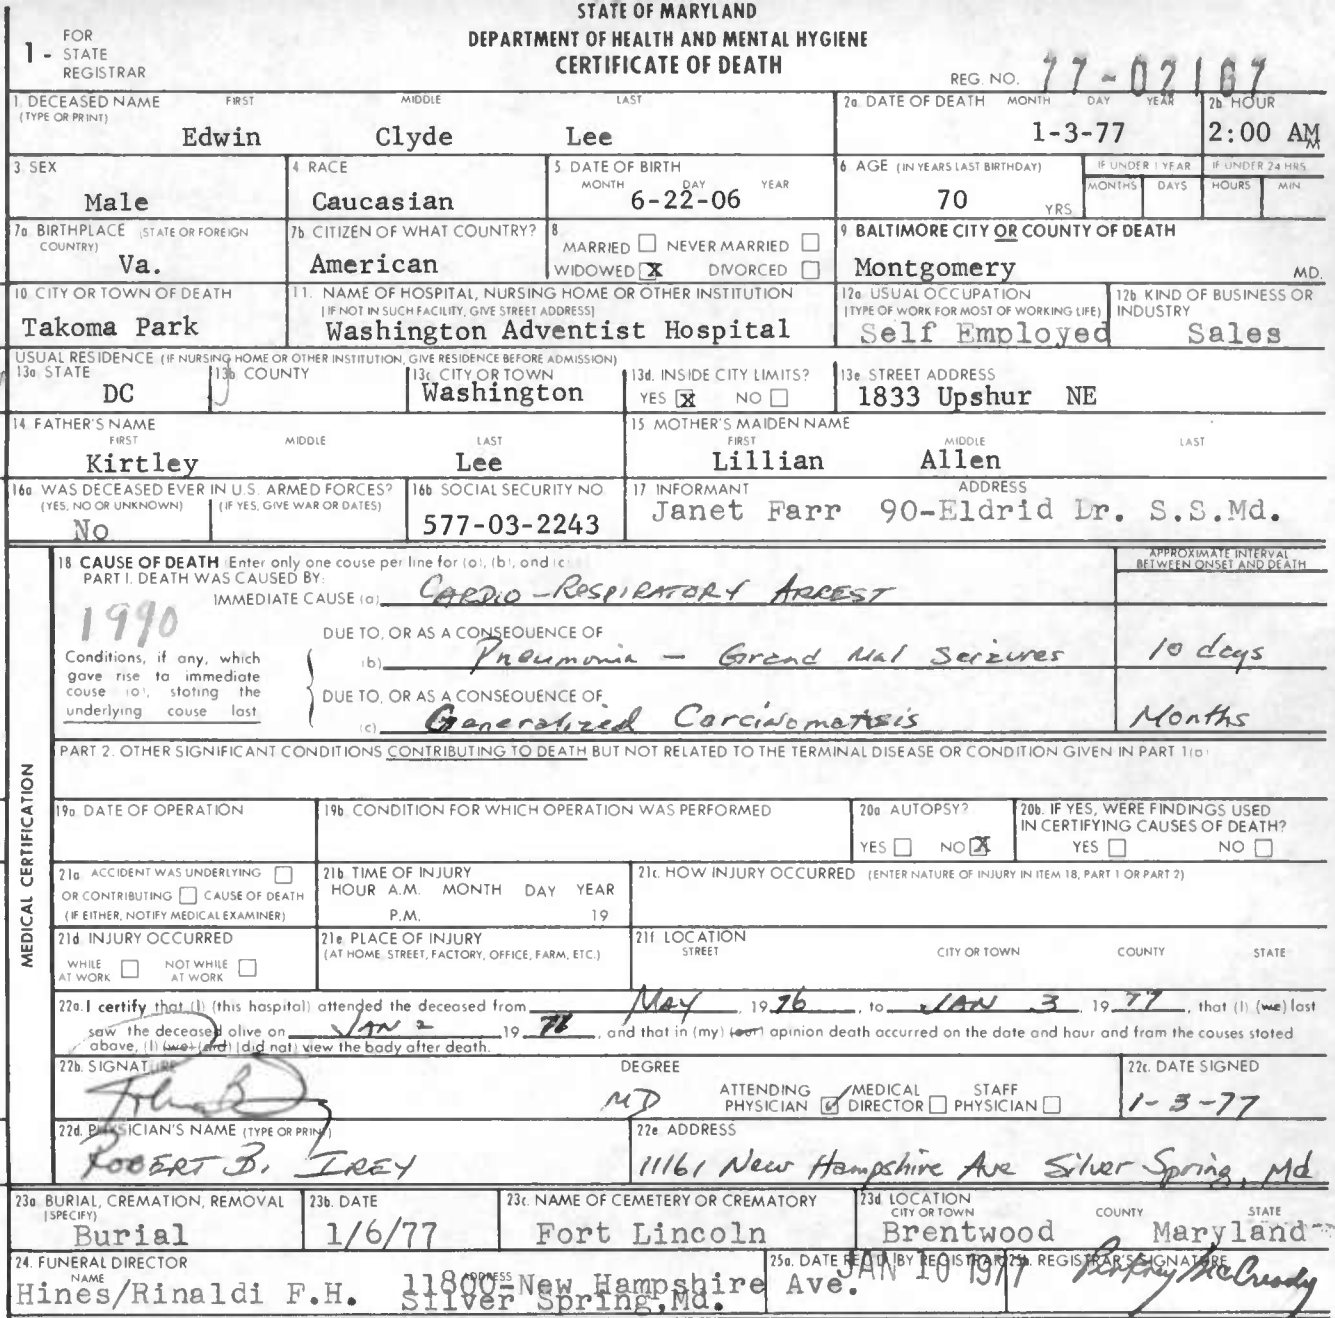 STATE OF MARYLAND
DEPARTMENT OF HEALTH AND MENTAL HYGIENE
CERTIFICATE OF DEATH
1 - FOR STATE REGISTRAR
REG. NO. 77-02167
1. DECEASED NAME FIRST MIDDLE LAST
(TYPE OR PRINT)
Edwin Clyde Lee
2a. DATE OF DEATH MONTH DAY YEAR
1-3-77
2b. HOUR
2:00 AM
M
3. SEX
Male
4. RACE
Caucasian
5. DATE OF BIRTH
MONTH DAY YEAR
6-22-06
6. AGE (IN YEARS LAST BIRTHDAY)
70 YRS.
IF UNDER 1 YEAR
MONTHS DAYS
IF UNDER 24 HRS.
HOURS MIN.
7a. BIRTHPLACE (STATE OR FOREIGN COUNTRY)
Va.
7b. CITIZEN OF WHAT COUNTRY?
American
8.
MARRIED NEVER MARRIED
WIDOWED X DIVORCED
9. BALTIMORE CITY OR COUNTY OF DEATH
Montgomery MD.
10. CITY OR TOWN OF DEATH
Takoma Park
11. NAME OF HOSPITAL, NURSING HOME OR OTHER INSTITUTION
(IF NOT IN SUCH FACILITY, GIVE STREET ADDRESS)
Washington Adventist Hospital
12a. USUAL OCCUPATION
(TYPE OF WORK FOR MOST OF WORKING LIFE)
Self Employed
12b. KIND OF BUSINESS OR INDUSTRY
Sales
USUAL RESIDENCE (IF NURSING HOME OR OTHER INSTITUTION, GIVE RESIDENCE BEFORE ADMISSION)
13a. STATE
DC
13b. COUNTY
13c. CITY OR TOWN
Washington
13d. INSIDE CITY LIMITS?
YES X NO
13e. STREET ADDRESS
1833 Upshur NE
14. FATHER'S NAME
FIRST MIDDLE LAST
Kirtley Lee
15. MOTHER'S MAIDEN NAME
FIRST MIDDLE LAST
Lillian Allen
16a. WAS DECEASED EVER IN U.S. ARMED FORCES?
(YES, NO OR UNKNOWN) (IF YES, GIVE WAR OR DATES)
No
16b. SOCIAL SECURITY NO.
577-03-2243
17. INFORMANT ADDRESS
Janet Farr 90-Eldrid Dr. S.S.Md.
MEDICAL CERTIFICATION
18. CAUSE OF DEATH (Enter only one cause per line for (a), (b), and (c)
PART I. DEATH WAS CAUSED BY:
APPROXIMATE INTERVAL BETWEEN ONSET AND DEATH
IMMEDIATE CAUSE (a) CARDIO-RESPIRATORY ARREST
1990
Conditions, if any, which gave rise to immediate cause (a), stating the underlying cause last
DUE TO, OR AS A CONSEQUENCE OF
(b) Pneumonia - Grand Mal Seizures 10 days
DUE TO, OR AS A CONSEQUENCE OF
(c) Generalized Carcinomatosis Months
PART 2. OTHER SIGNIFICANT CONDITIONS CONTRIBUTING TO DEATH BUT NOT RELATED TO THE TERMINAL DISEASE OR CONDITION GIVEN IN PART 1(a)
19a. DATE OF OPERATION
19b. CONDITION FOR WHICH OPERATION WAS PERFORMED
20a. AUTOPSY?
YES NO X
20b. IF YES, WERE FINDINGS USED IN CERTIFYING CAUSES OF DEATH?
YES NO
21a. ACCIDENT WAS UNDERLYING
OR CONTRIBUTING CAUSE OF DEATH
(IF EITHER, NOTIFY MEDICAL EXAMINER)
21b. TIME OF INJURY
HOUR A.M. MONTH DAY YEAR
P.M. 19
21c. HOW INJURY OCCURRED (ENTER NATURE OF INJURY IN ITEM 18, PART 1 OR PART 2)
21d. INJURY OCCURRED
WHILE AT WORK NOT WHILE AT WORK
21e. PLACE OF INJURY
(AT HOME, STREET, FACTORY, OFFICE, FARM, ETC.)
21f. LOCATION
STREET CITY OR TOWN COUNTY STATE
22a. I certify that (I) (this hospital) attended the deceased from May 1976, to JAN 3 1977, that (I) (we) last
saw the deceased alive on JAN 2 19, and that in (my) (our) opinion death occurred on the date and hour and from the causes stated
above, (I) (we) (did) (did not) view the body after death.
22b. SIGNATURE
DEGREE
MD
ATTENDING PHYSICIAN ✓ MEDICAL DIRECTOR STAFF PHYSICIAN
22c. DATE SIGNED
1-3-77
22d. PHYSICIAN'S NAME (TYPE OR PRINT)
ROBERT B. IREY
22e. ADDRESS
11161 New Hampshire Ave Silver Spring, Md
23a. BURIAL, CREMATION, REMOVAL
(SPECIFY)
Burial
23b. DATE
1/6/77
23c. NAME OF CEMETERY OR CREMATORY
Fort Lincoln
23d. LOCATION
CITY OR TOWN COUNTY STATE
Brentwood Maryland
24. FUNERAL DIRECTOR
NAME ADDRESS
Hines/Rinaldi F.H. 11800-New Hampshire Ave.
Silver Spring, Md.
25a. DATE REC'D BY REGISTRAR
JAN 10 1977
25b. REGISTRAR'S SIGNATURE
McCready